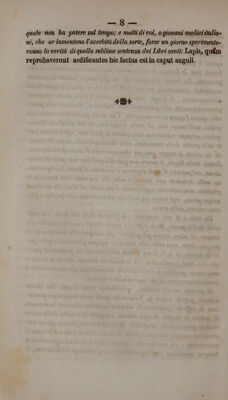 — 8 —
quale non ha potere sul tempo; e molti di voi, o giovani medici italia-
ni, che or lamentono l'acerbità della sorte, forse un giorno sperimente-
ranno la verità di quella sublime sentenza dei Libri santi: Lapis, quem
reprobaverunt aedificantes hic factus est in caput anguli.